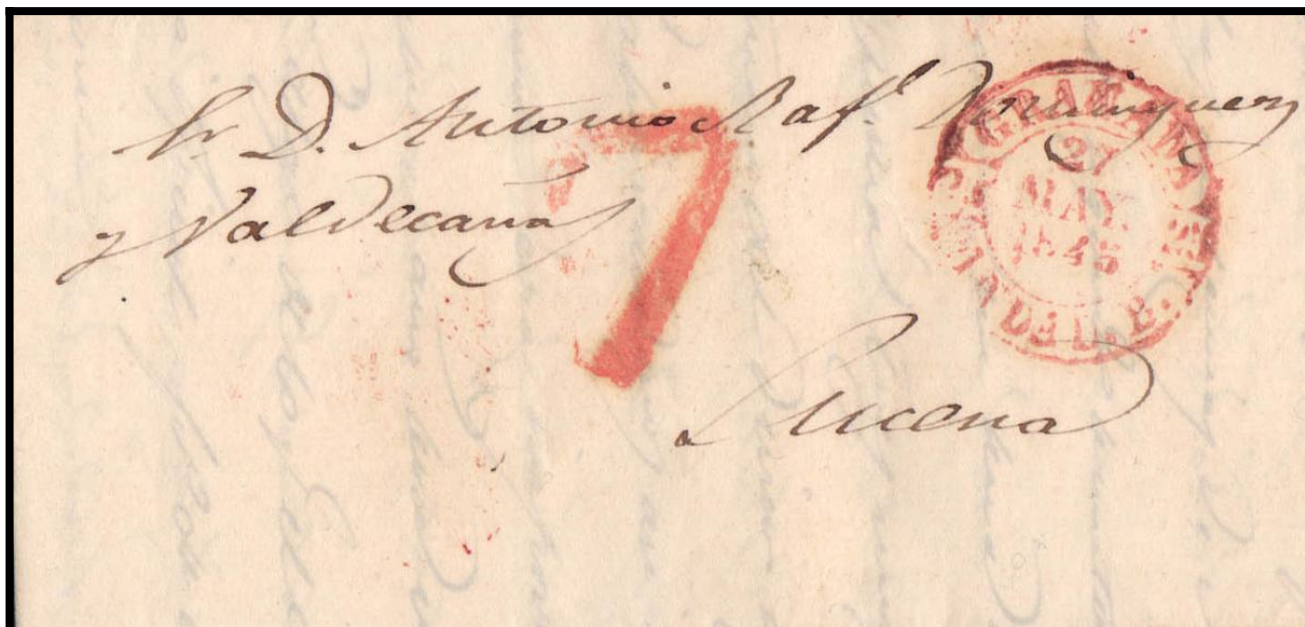 Sr. D. Antonio Raf.l Dominguez
y Valdecañas
7
GRANADA
27
MAY
1845
ANDA BAJA
Lucena